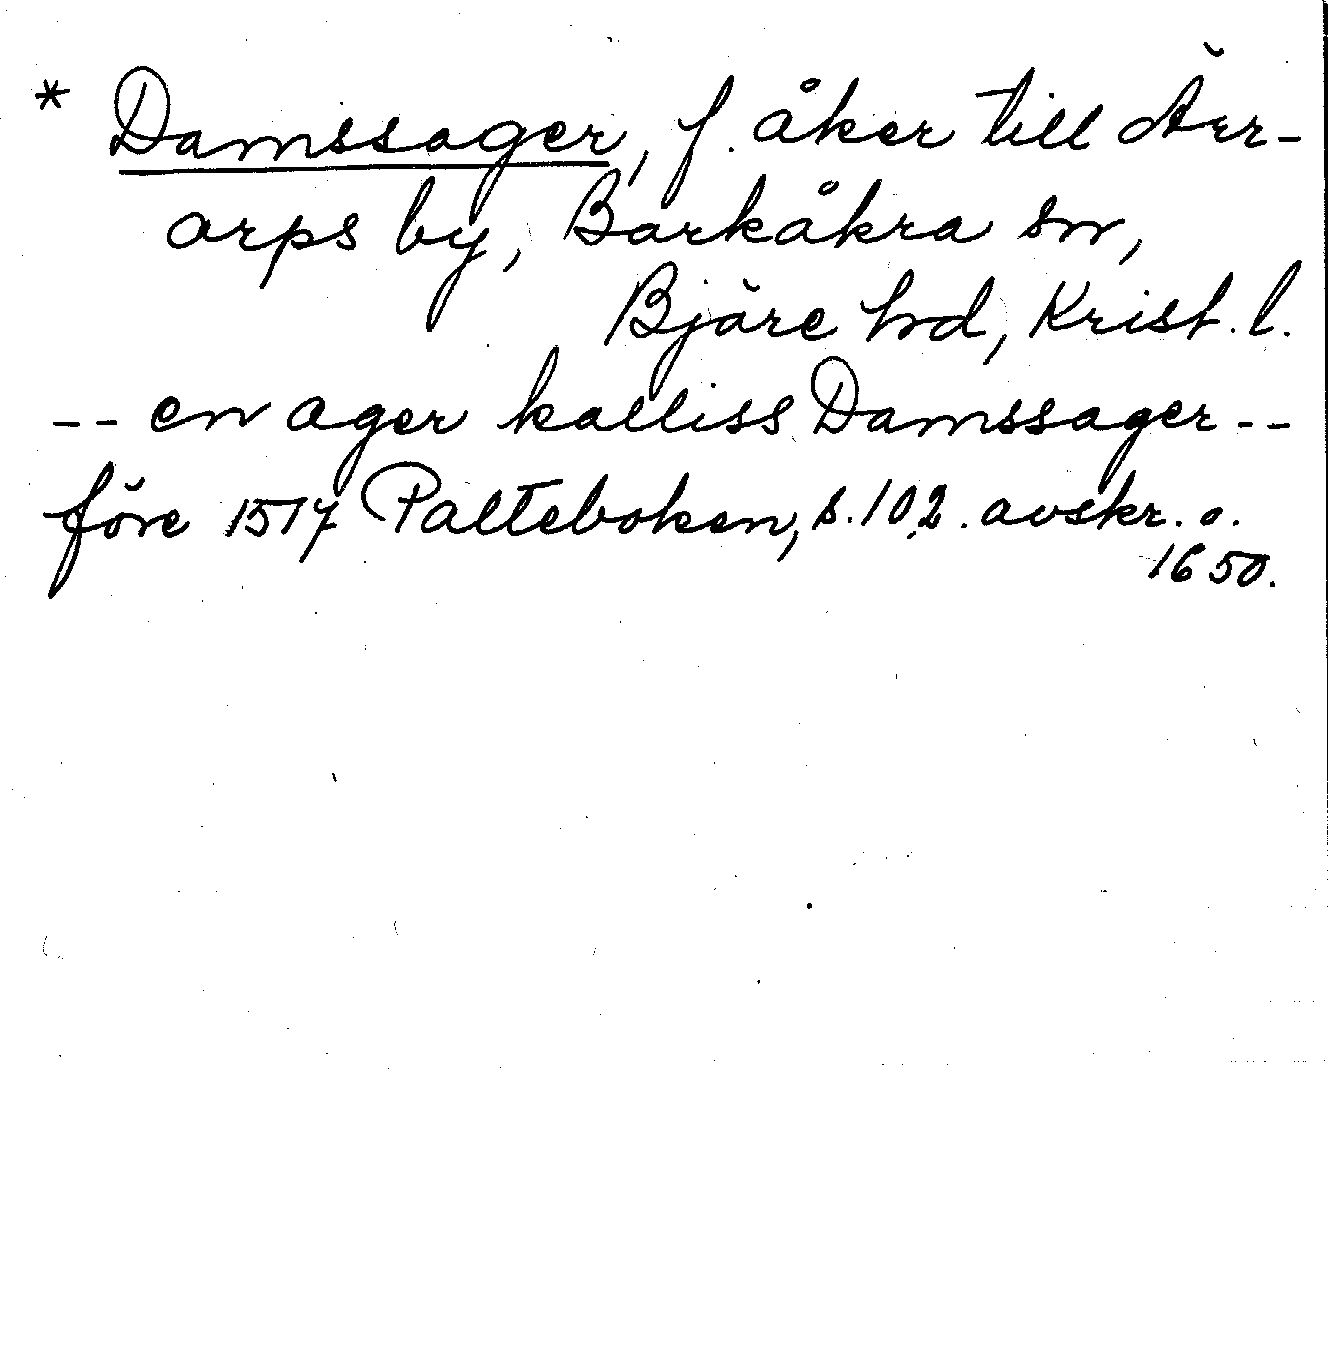 * Damssager, f. åker till Ärr-
arps by, Barkåkra sn,
Bjäre hd, Krist. l.
-- en ager kalliss Damssager --
före 1517 Palteboken, s. 102. avskr. o.
1650.